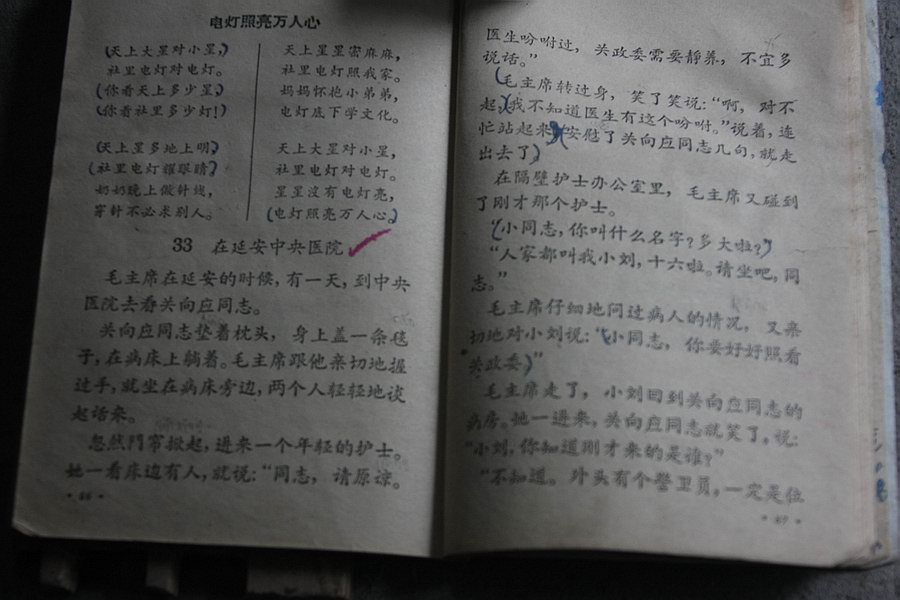 电灯照亮万人心
天上大星对小星，
社里电灯对电灯。
你看天上多少星，
你看社里多少灯！
天上星多地上明，
社里电灯耀眼睛，
奶奶晚上做针线，
穿针不必求别人。
天上星星密麻麻，
社里电灯照我家。
妈妈怀抱小弟弟，
电灯底下学文化。
天上大星对小星，
社里电灯对电灯。
星星没有电灯亮，
电灯照亮万人心。
33 在延安中央医院
毛主席在延安的时候，有一天，到中央
医院去看关向应同志。
关向应同志垫着枕头，身上盖一条毯
子，在病床上躺着。毛主席跟他亲切地握
过手，就坐在病床旁边，两个人轻轻地谈
起话来。
忽然门帘掀起，进来一个年轻的护士。
她一看床边有人，就说：“同志，请原谅。
· 68 ·
医生吩咐过，关政委需要静养，不宜多
说话。”
毛主席转过身，笑了笑说：“啊，对不
起，我不知道医生有这个吩咐。”说着，连
忙站起来，安慰了关向应同志几句，就走
出去了。
在隔壁护士办公室里，毛主席又碰到
了刚才那个护士。
“小同志，你叫什么名字？多大啦？”
“人家都叫我小刘，十六啦。请坐吧，同
志。”
毛主席仔细地问过病人的情况，又亲
切地对小刘说：“小同志，你要好好照看
关政委。”
毛主席走了，小刘回到关向应同志的
病房。她一进来，关向应同志就笑了，说：
“小刘，你知道刚才来的是谁？”
“不知道。外头有个警卫员，一定是位
· 69 ·